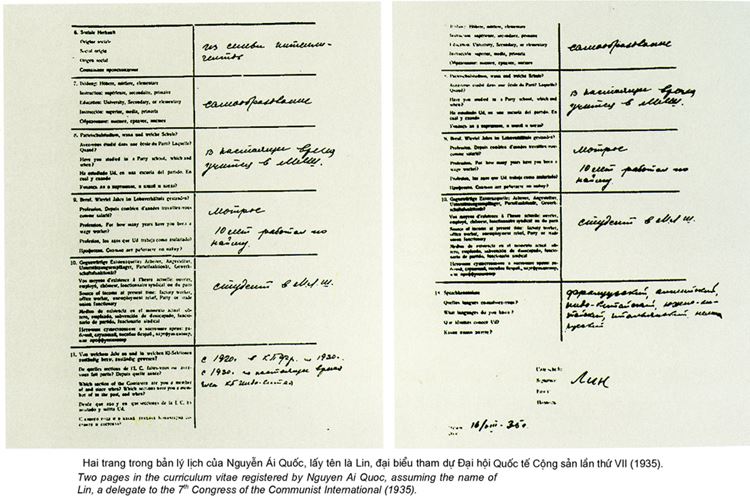 6. Soziale Herkunft
Origine sociale
Social origin
Origen social
Социальное происхождение
из семьи интелли-
гентов
7. Bildung: Höhere, mittlere, elementare
Instruction: supérieure, secondaire, primaire
Education: University, Secondary, or elementary
Instrucción: superior, media, primaria
Образование: высшее, среднее, низшее
самообразование
8. Parteischulstudium, wann und welche Schule?
Avez-vous étudié dans une école du Parti? Laquelle?
Quand?
Have you studied in a Party school, which and
when?
Ha estudiado Ud. en una escuela del partido. En
cual y cuando
Учились ли в партшколе, в какой и когда?
В настоящее время
учится в МЛШ.
9. Beruf. Wieviel Jahre im Lohnverhältnis gestanden?
Profession. Depuis combien d'années travaillez-vous
comme salarié?
Profession. For how many years have you been a
wage worker?
Profesión, los años que Ud trabaja como asalariado?
Профессия. Сколько лет работаете по найму?
Матрос
10 лет работал по
найму.
10. Gegenwärtige Existenzquelle: Arbeiter, Angestellter,
Unterstützungsempfänger, Parteifunktionär, Gewerk-
schaftsfunktionär?
Vos moyens d'existence à l'heure actuelle: ouvrier,
employé, chômeur, fonctionnaire syndical ou du parti
Source of income at present time: factory worker,
office worker, unemployment relief, Party or trade
union functionary
Medios de existencia en el momento actual: obrero,
empleado, subvención de desocupado, funcio-
nario de partido, funcionario sindical
студент в МЛШ.
11. Von welchem Jahr an und in welchen KI-Sektionen
De quelles sections de l'I. C. faites-vous ou avez-
vous fait partie? Depuis quelle année?
Which section of the Comintern are you a member
of and since when? Which sections were you a mem-
ber of in the past, and when?
Desde que año y en que secciones de la I. C. ha
estado y milita Ud.
с 1920 г. в КПФр. по 1930 г.
с 1930 по настоящее время
член КП Индо-Китая
Bildung: Höhere, mittlere, elementare
Instruction: supérieure, secondaire, primaire
Education: University, Secondary, or elementary
Instrucción: superior, media, primaria
Образование: высшее, среднее, низшее
самообразование
Parteischulstudium, wann und welche Schule?
Avez-vous étudié dans une école du Parti? Laquelle?
Quand?
Have you studied in a Party school, which and
when?
Ha estudiado Ud. en una escuela del partido. En
cual y cuando
Учились ли в партшколе, в какой и когда?
В настоящее время
учится в МЛШ.
9. Beruf. Wieviel Jahre im Lohnverhältnis gestanden?
Profession. Depuis combien d'années travaillez-vous
comme salarié?
Profession. For how many years have you been a
wage worker?
Profesión, los años que Ud trabaja como asalariado?
Профессия. Сколько лет работаете по найму?
Матрос
10 лет работал по
найму
10. Gegenwärtige Existenzquelle: Arbeiter, Angestellter,
Unterstützungsempfänger, Parteifunktionär, Gewerk-
schaftsfunktionär?
Vos moyens d'existence à l'heure actuelle: ouvrier,
employé, chômeur, fonctionnaire syndical ou du parti
Source of income at present time: factory worker,
office worker, unemployment relief, Party or trade
union functionary
Medios de existencia en el momento actual: obrero,
empleado, subvención de desocupado, funcio-
nario de partido, funcionario sindical
студент в МЛШ.
11 Sprachkenntnisse
Quelles langues connaissez-vous?
What languages do you know?
Que idiomas conoce Ud?
Какие языки знаете?
французский, английский,
индо-китайский,
итальянский, немец
русский
Лин
16/VIII-35 г.
Hai trang trong bản lý lịch của Nguyễn Ái Quốc, lấy tên là Lin, đại biểu tham dự Đại hội Quốc tế Cộng sản lần thứ VII (1935).
Two pages in the curriculum vitae registered by Nguyen Ai Quoc, assuming the name of
Lin, a delegate to the 7th Congress of the Communist International (1935).